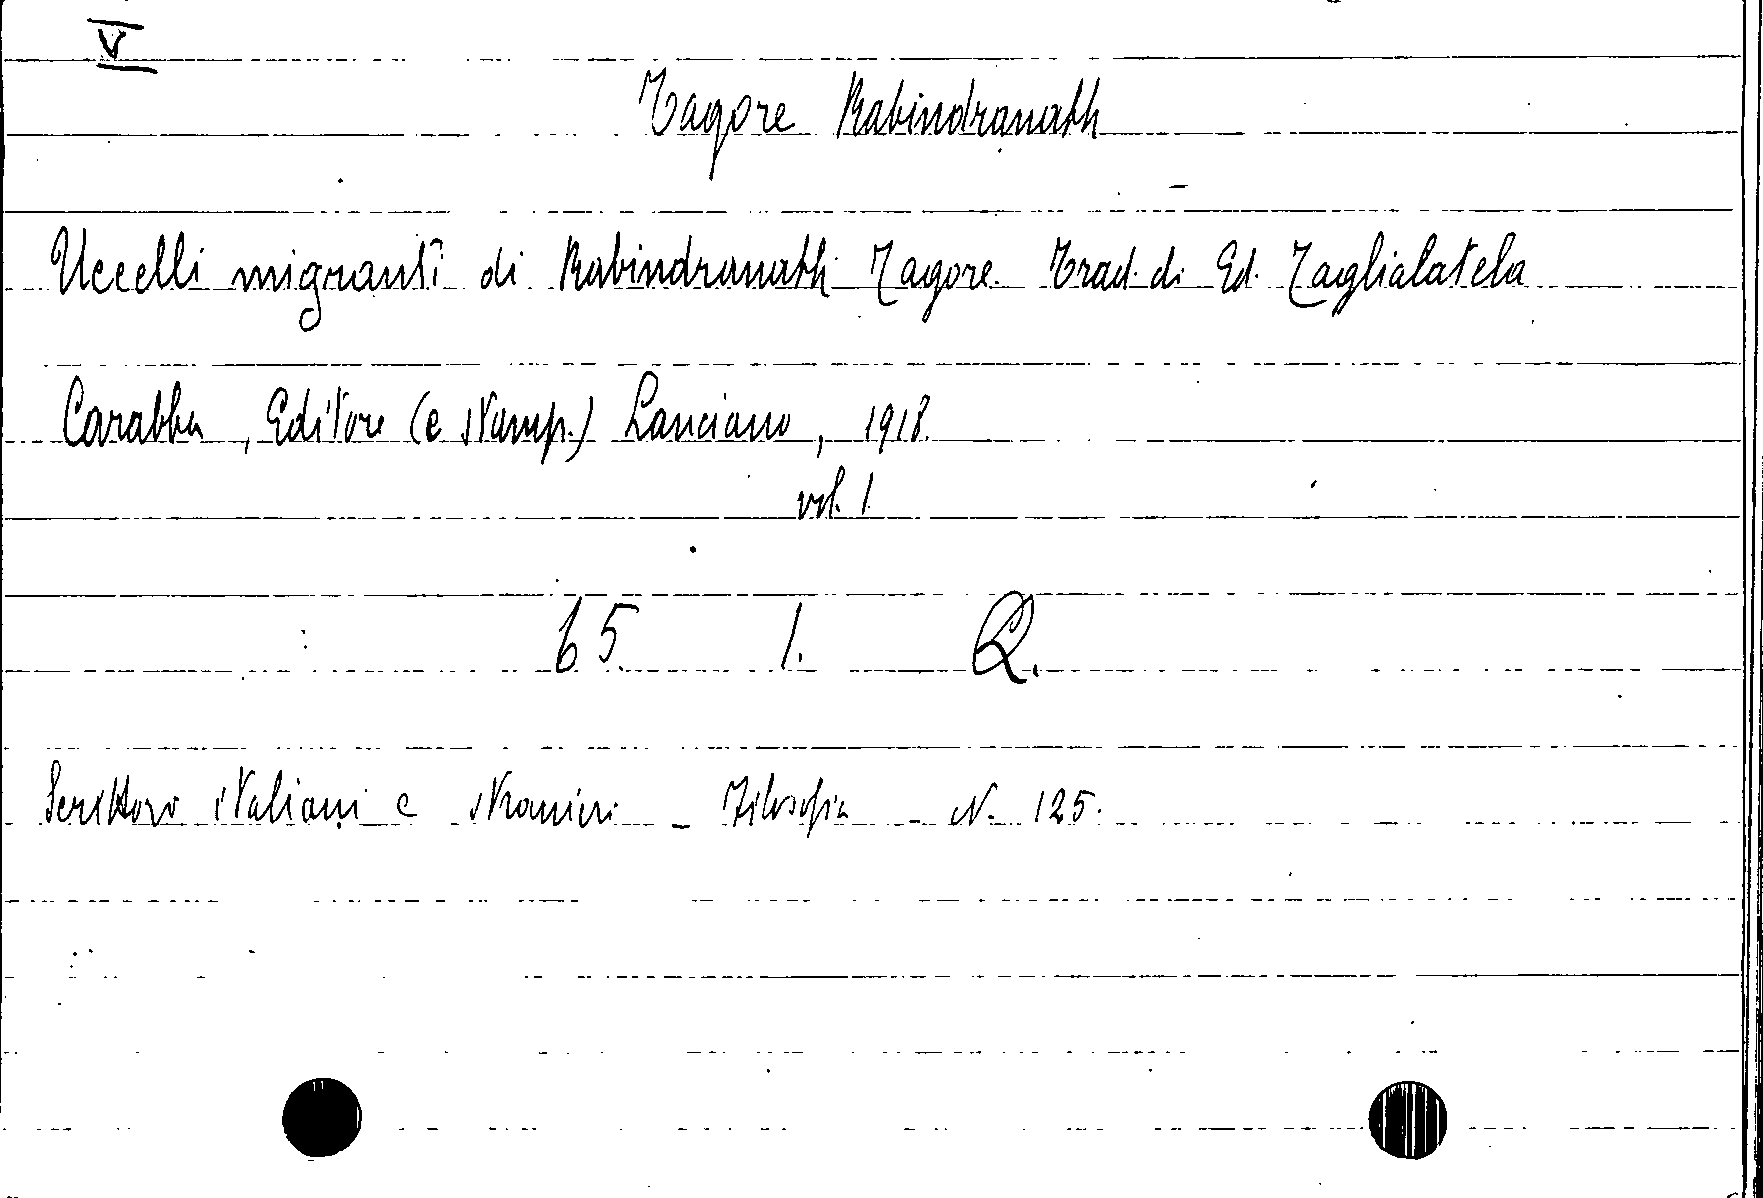 V
Tagore Rabindranath
Uccelli migranti di Rabindranath Tagore. Trad. di Ed. Taglialatela
Carabba, Editore (e stamp.) Lanciano, 1918.
vol. 1
65. 1. Q.
Scrittori italiani e stranieri - Filosofia - N. 125.